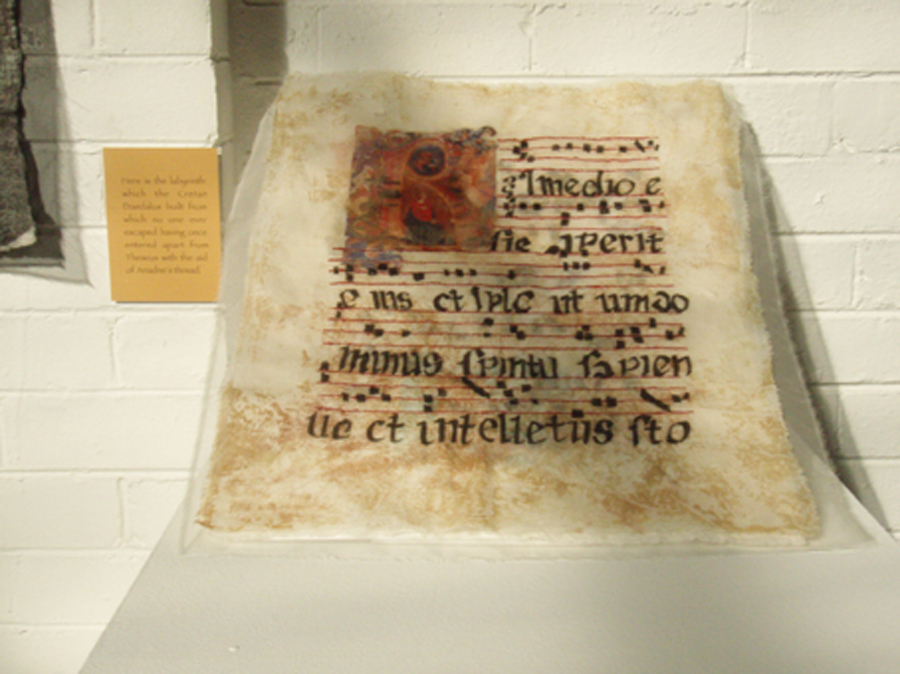 Here is the labyrinth
which the Cretan
Daedalus built from
which no one ever
escaped having once
entered apart from
Theseus with the aid
of Ariadne's thread.
Imedio e
sie aperit
e ius et iplc ut umdo
minus spiritu sapien
et intelletus sto